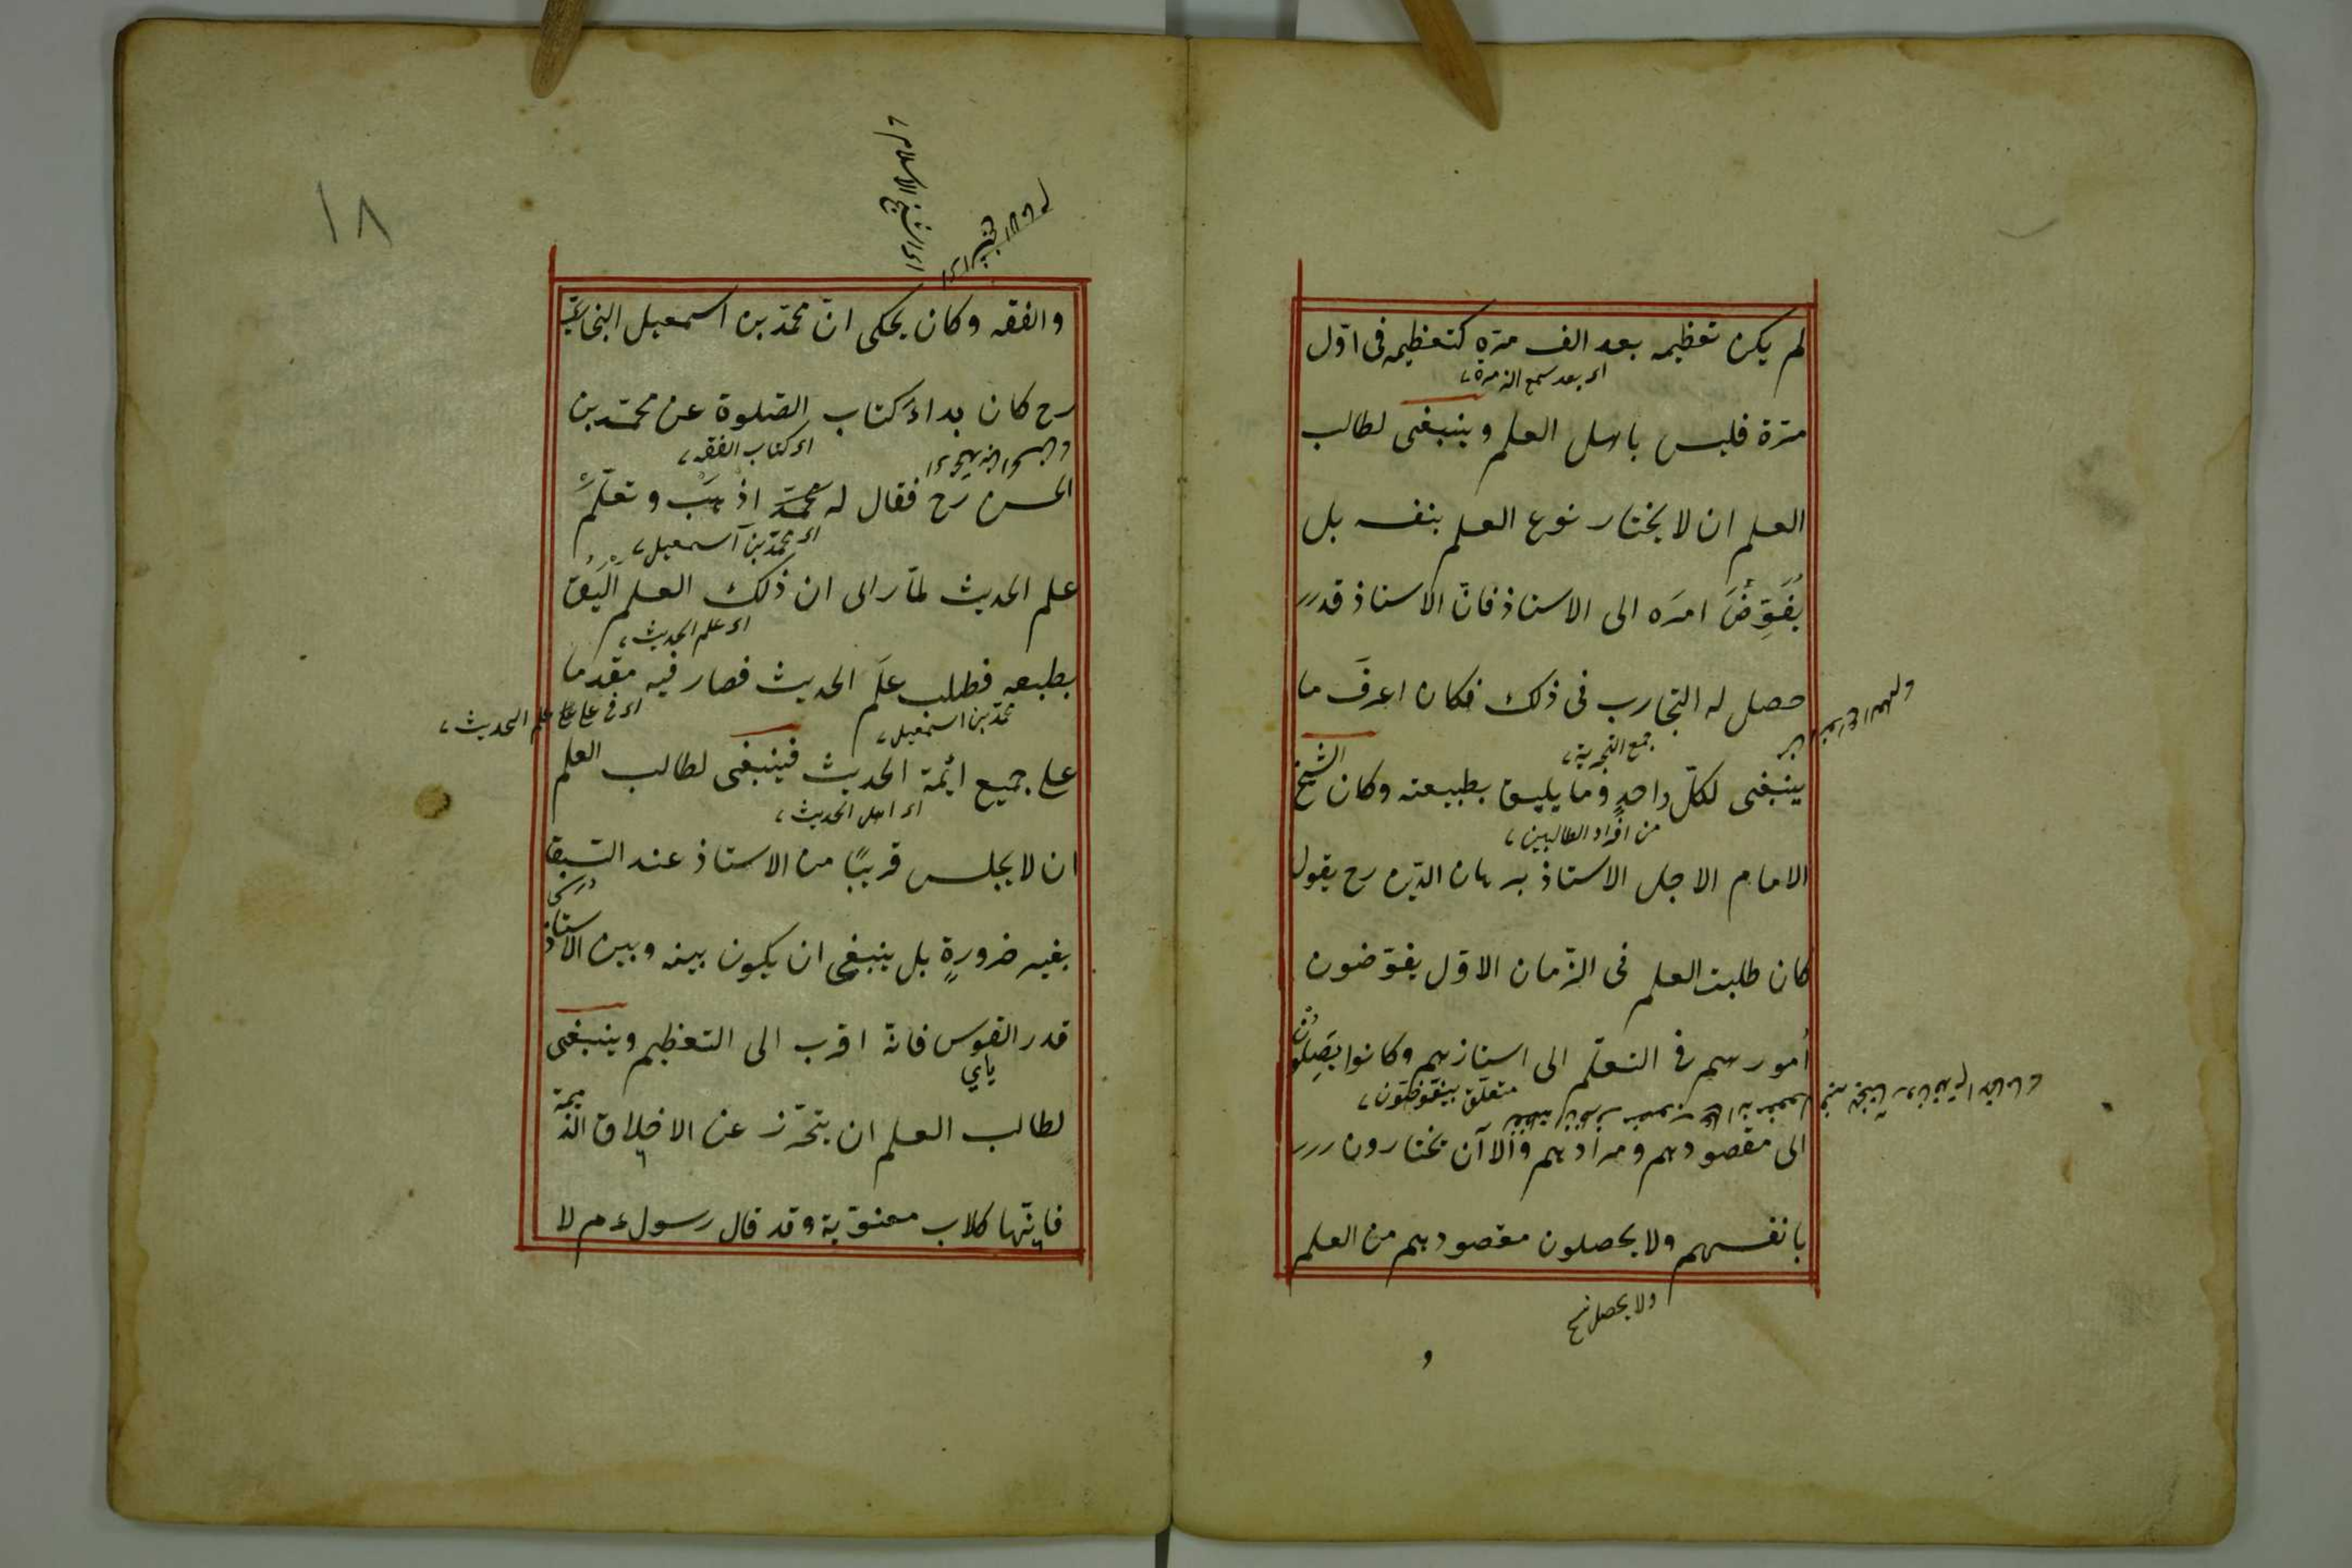 لم يكن تعظيمه بعد الف مرّة كتعظيمه فى اوّل
اى بعد سمع الف مرة
مرّة فليس باهل العلم وينبغى لطالب
العلم ان لا يختار نوع العلم بنفسه بل
يُفَوِّضَ امرَه الى الاستاذ فانّ الاستاذ قد
حصل له التجارب فى ذلك فكان اعرفَ ما
جمع التجربة
ينبغى لكلّ واحدٍ وما يليق بطبيعته وكان الشيخ
من افراد الطالبين
الامام الاجل الاستاذ برهان الدّين رح يقول
كان طلبة العلم فى الزّمان الاوّل يفوّضون
اُمورهم فى التعلّم الى استاذهم وكانوا يَصِلُونَ
متعلّق بيفوّضون
الى مقصودهم ومرادهم والآن يختارون
بانفسهم ولا يحصلون مقصودهم من العلم
ولا يحصل نسخ
و
١٨
اى الشيخ الاسلام
والفقه وكان يحكى انّ محمّد بن اسمعيل البخارىّ
رح كان بداءَ كتاب الصّلوة عن محمّد بن
اى كتاب الفقه
الحسن رح فقال له محمّد اذهَبْ وتعلَّمْ
اى محمّد بن اسمعيل
علم الحديث لمّا راى ان ذلك العلم اَلْيَقُ
اى علم الحديث
بطبعه فطلب علمَ الحديث فصار فيه مقدما
محمّد بن اسمعيل
علم الحديث
على جميع ائمّة الحديث فينبغى لطالب العلم
اى اهل الحديث
ان لا يجلس قريبًا من الاستاذ عند السّبق
بغير ضرورةٍ بل ينبغى ان يكون بينه وبين الاستاذ
قدر القوس فانّه اقرب الى التعظيم وينبغى
ياى
لطالب العلم ان يتحرّز عن الاخلاق الذميمة
فانّها كلاب معنويّة وقد قال رسول عم لا